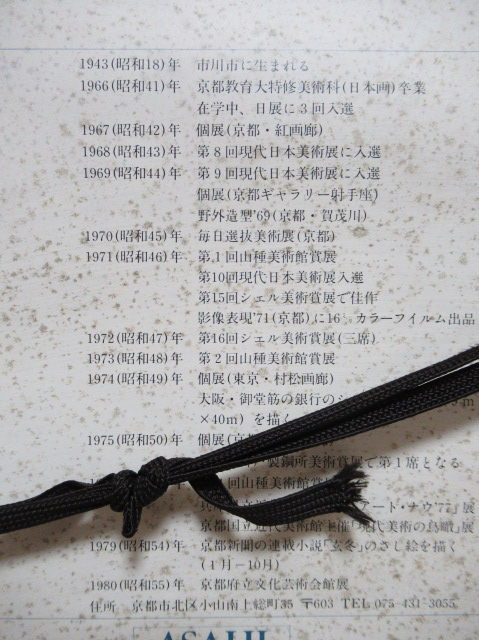 1943(昭和18)年 市川市に生まれる
1966(昭和41)年 京都教育大特修美術科(日本画)卒業
在学中、日展に3回入選
1967(昭和42)年 個展(京都・紅画廊)
1968(昭和43)年 第8回現代日本美術展に入選
1969(昭和44)年 第9回現代日本美術展に入選
個展(京都ギャラリー射手座)
野外造型'69(京都・賀茂川)
1970(昭和45)年 毎日選抜美術展(京都)
1971(昭和46)年 第1回山種美術館賞展
第10回現代日本美術展入選
第15回シェル美術賞展で佳作
影像表現'71(京都)に16㍉カラーフイルム出品
1972(昭和47)年 第16回シェル美術賞展(三席)
1973(昭和48)年 第2回山種美術館賞展
1974(昭和49)年 個展(東京・村松画廊)
大阪・御堂筋の銀行のシ
×40m)を描く
1975(昭和50)年 個展(京
製鋼所美術賞展で第1席となる
アート・ナウ'77」展
京都国立近代美術館主催「現代美術の鳥瞰」展
1979(昭和54)年 京都新聞の連載小説「玄冬」のさし絵を描く
(4月−10月)
1980(昭和55)年 京都府立文化芸術会館展
住所 京都市北区小山南上総町35 〒603 TEL 075-431-3055
ASAHI